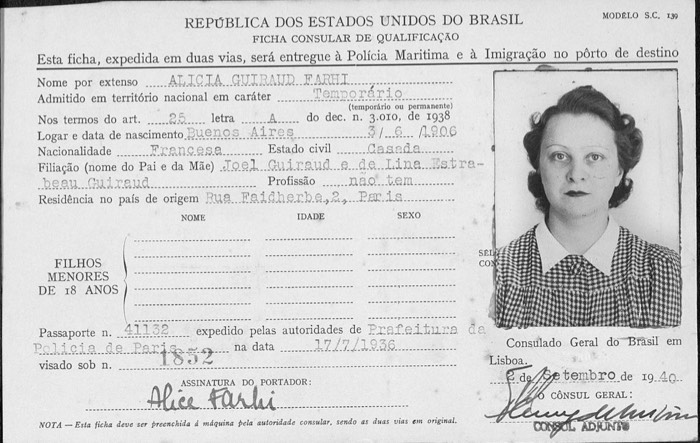 REPÚBLICA DOS ESTADOS UNIDOS DO BRASIL
MODÊLO S.C. 139
FICHA CONSULAR DE QUALIFICAÇÃO
Esta ficha, expedida em duas vias, será entregue à Polícia Maritima e à Imigração no pôrto de destino
Nome por extenso ALICIA GUIRAUD FARHI
Admitido em território nacional em caráter Temporário
(temporário ou permanente)
Nos termos do art. 25 letra A do dec. n. 3.010, de 1938
Logar e data de nascimento Buenos Aires 3/6/1906
Nacionalidade Francesa Estado civil Casada
Filiação (nome do Pai e da Mãe) Joel Guiraud e de Lina Estra-
beau Guiraud Profissão não tem
Residência no país de origem Rua Faidherbe, 2, Paris
NOME IDADE SEXO
FILHOS
MENORES
DE 18 ANOS
Passaporte n. 41132 expedido pelas autoridades de Prefeitura da
Policia de Paris na data 17/7/1936
visado sob n. 1852
ASSINATURA DO PORTADOR:
Alice Farhi
NOTA — Esta ficha deve ser preenchida á máquina pela autoridade consular, sendo as duas vias em original.
Consulado Geral do Brasil em
Lisboa.
2 de Setembro de 1940
O CÔNSUL GERAL:
CONSUL ADJUNTO